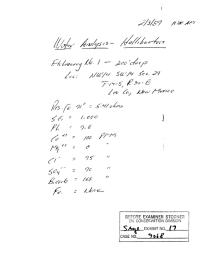 1
2/3/59 11:00 AM
Water Analysis - Halliburton
No. 1 - 200' deep
Loc: NW/4 SW/4 Sec 29
T-14-S, R-30-E
Lea Co, New Mexico
Res @ 71° = 5.41 ohms
= 1.000
Ph = 7.0
Ca++ = 100 PPM
Mg++ = 0 "
Cl- = 75 "
SO4= = 70 "
Bicarb = 165 "
Fe. = None
BEFORE EXAMINER STOGNER
OIL CONSERVATION DIVISION
EXHIBIT NO. 17
CASE NO. 9068